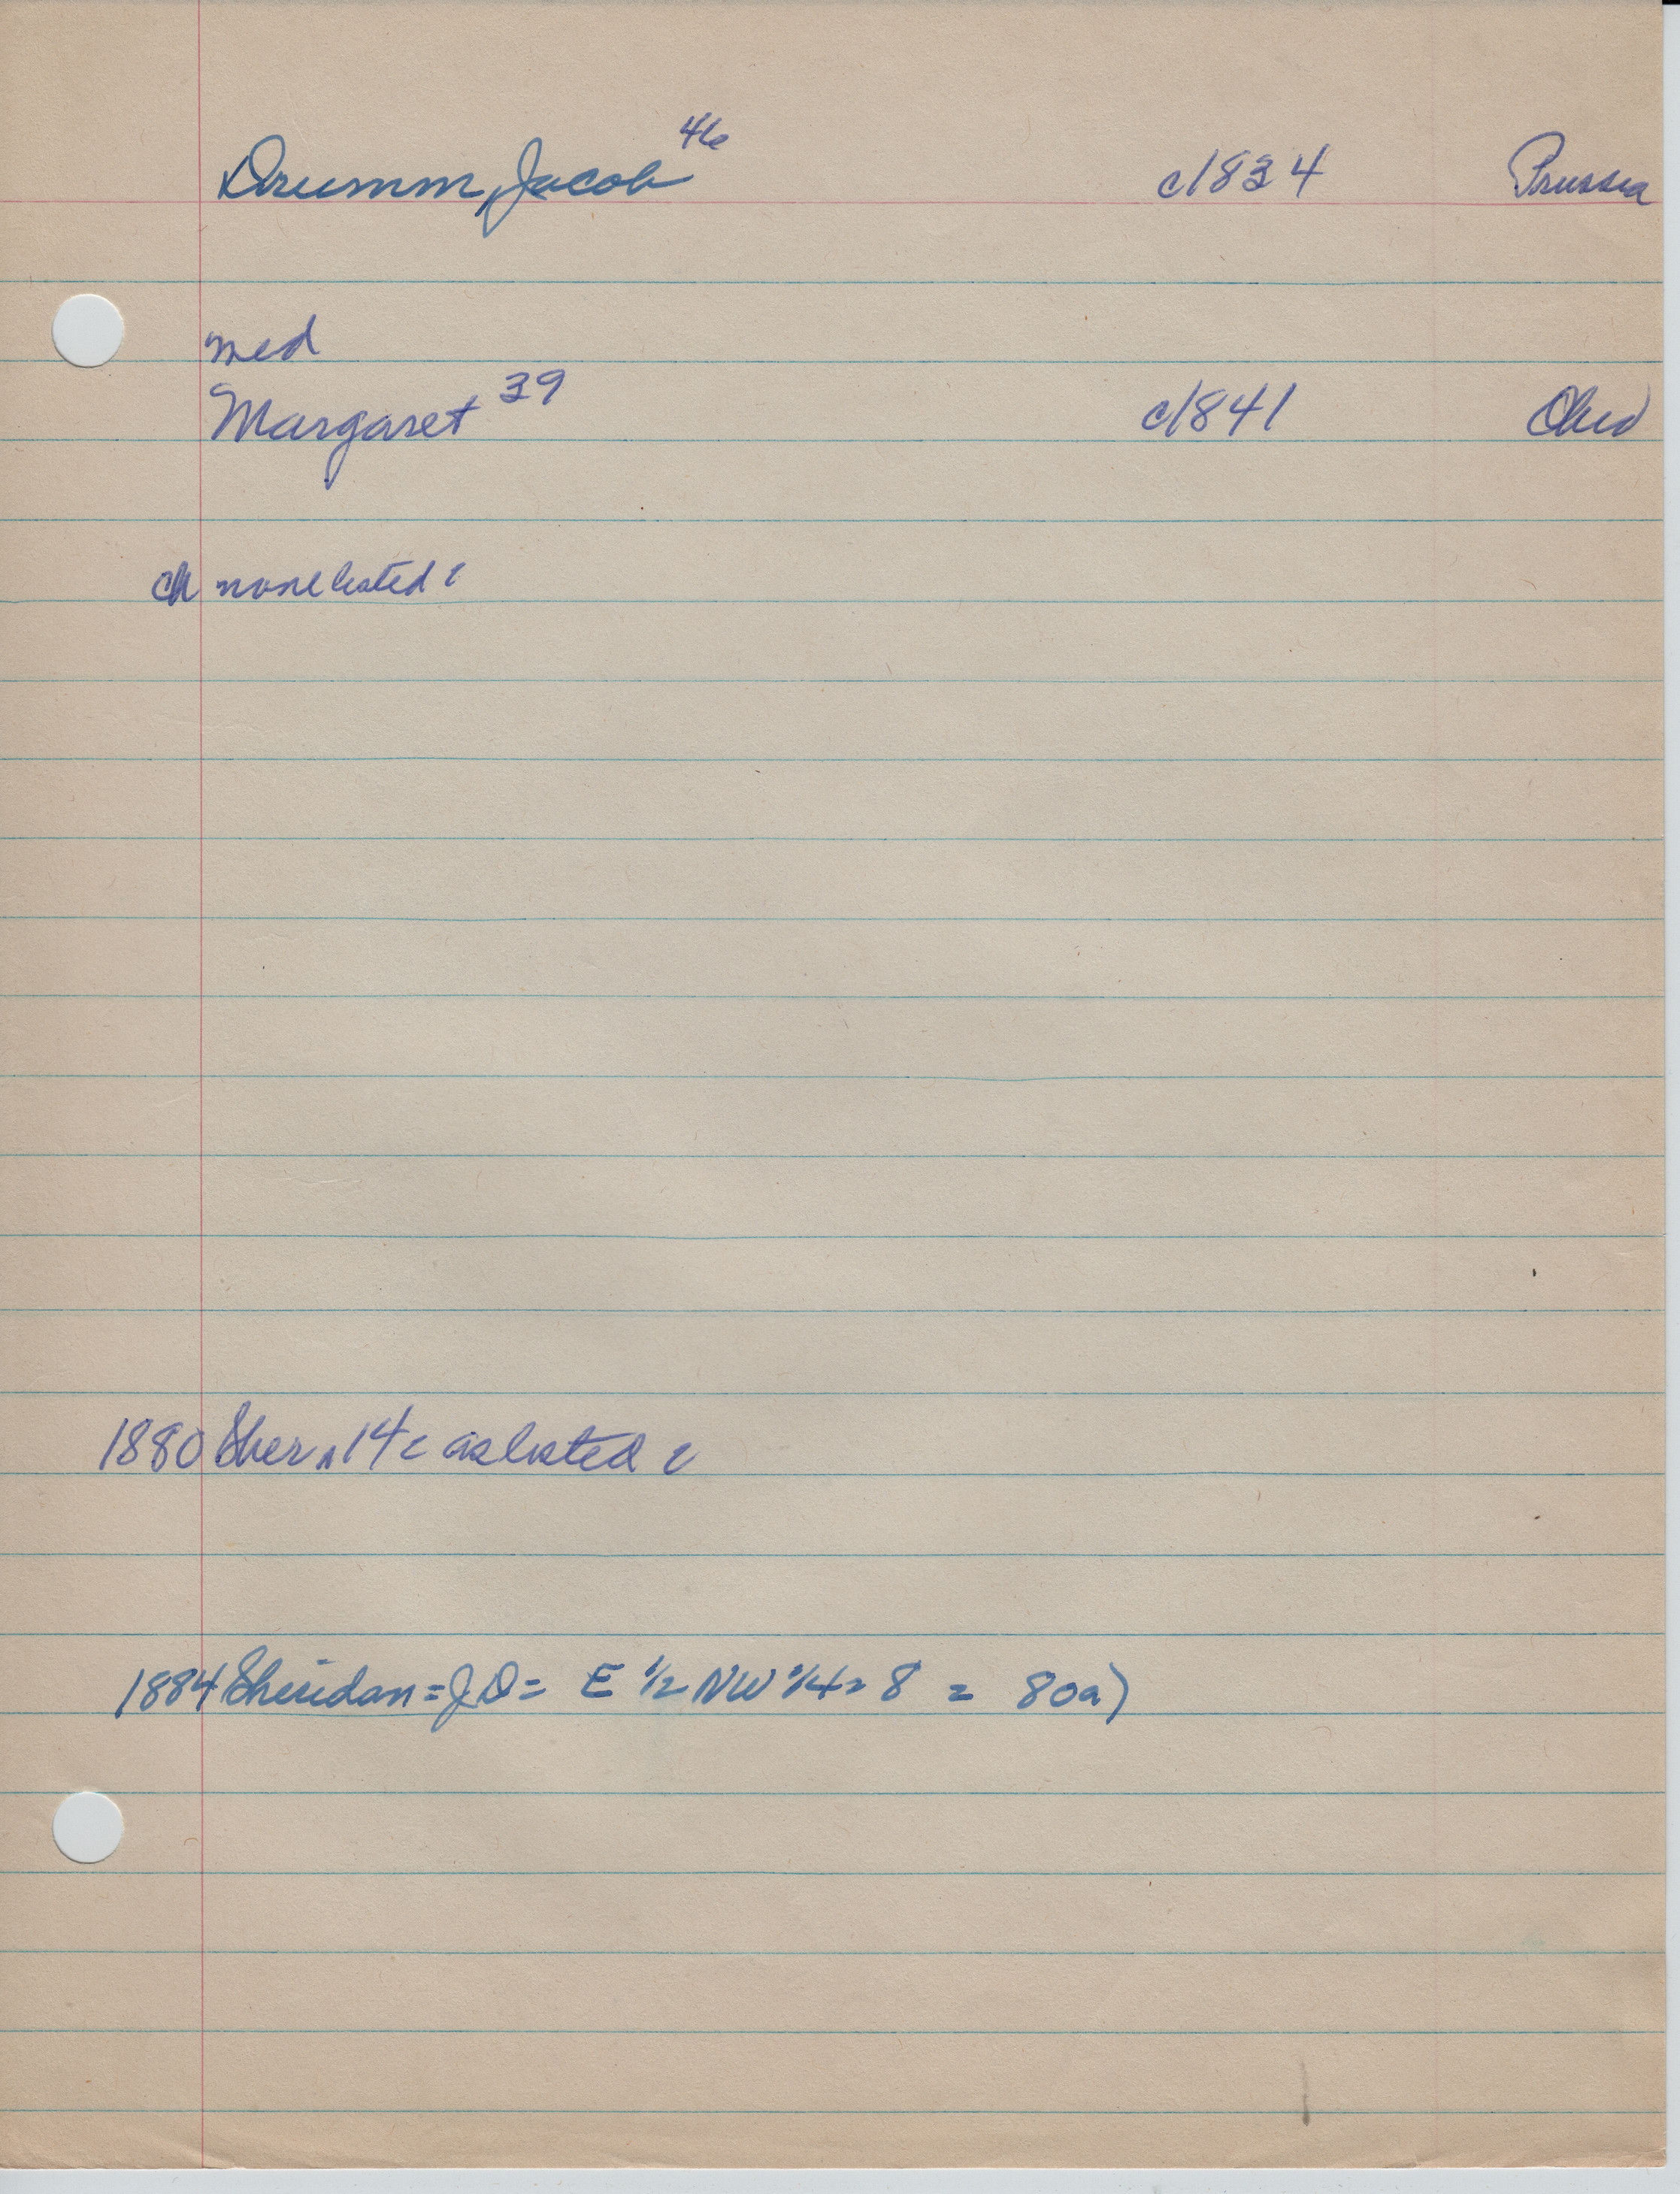 Drumm, Jacob 46 c1834 Prussia
med
Margaret 39 c1841 Ohio
ch none listed c
1880 Sher n 14 c as listed c
1884 Sheridan = JD = E 1/2 NW 1/4 = 8 = 80a)